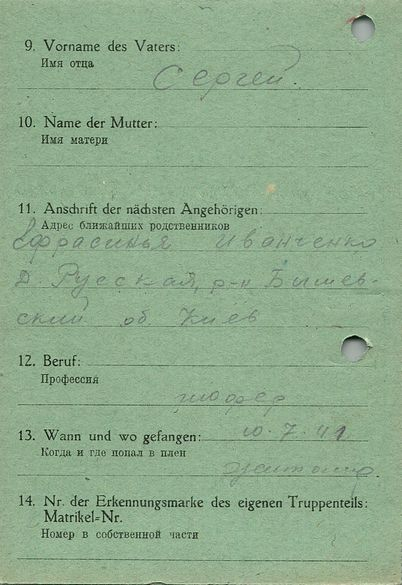 9. Vorname des Vaters:
Имя отца
Сергей.
10. Name der Mutter:
Имя матери
11. Anschrift der nächsten Angehörigen:
Адрес ближайших родственников
Ефрасинья Иванченко
Д. Русская, р-н Бышев-
ский об Киев
12. Beruf:
Профессия
шофер
13. Wann und wo gefangen: 10.7.41
Когда и где попал в плен
14. Nr. der Erkennungsmarke des eigenen Truppenteils:
Matrikel=Nr.
Номер в собственной части